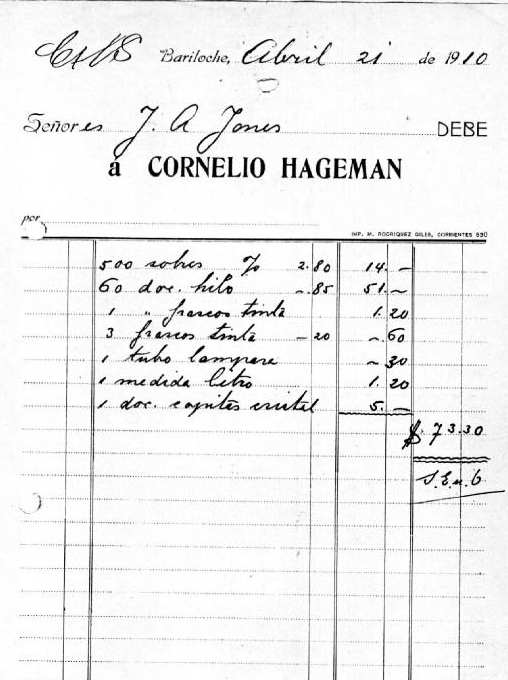 Bariloche, Abril 21 de 1910
Señores J. A Jones DEBE
á CORNELIO HAGEMAN
por
IMP. M. RODRIGUEZ GILES, CORRIENTES 630
500 sobres % 2.80 14. —
60 doc. hilo —.85 51. —
1 " frascos tinta 1.20
3 frascos tinta —20 —.60
1 tubo lampara —30
1 medida litro 1.20
1 doc. copites cristal 5. —
$ 73.30
S. E. u. O.